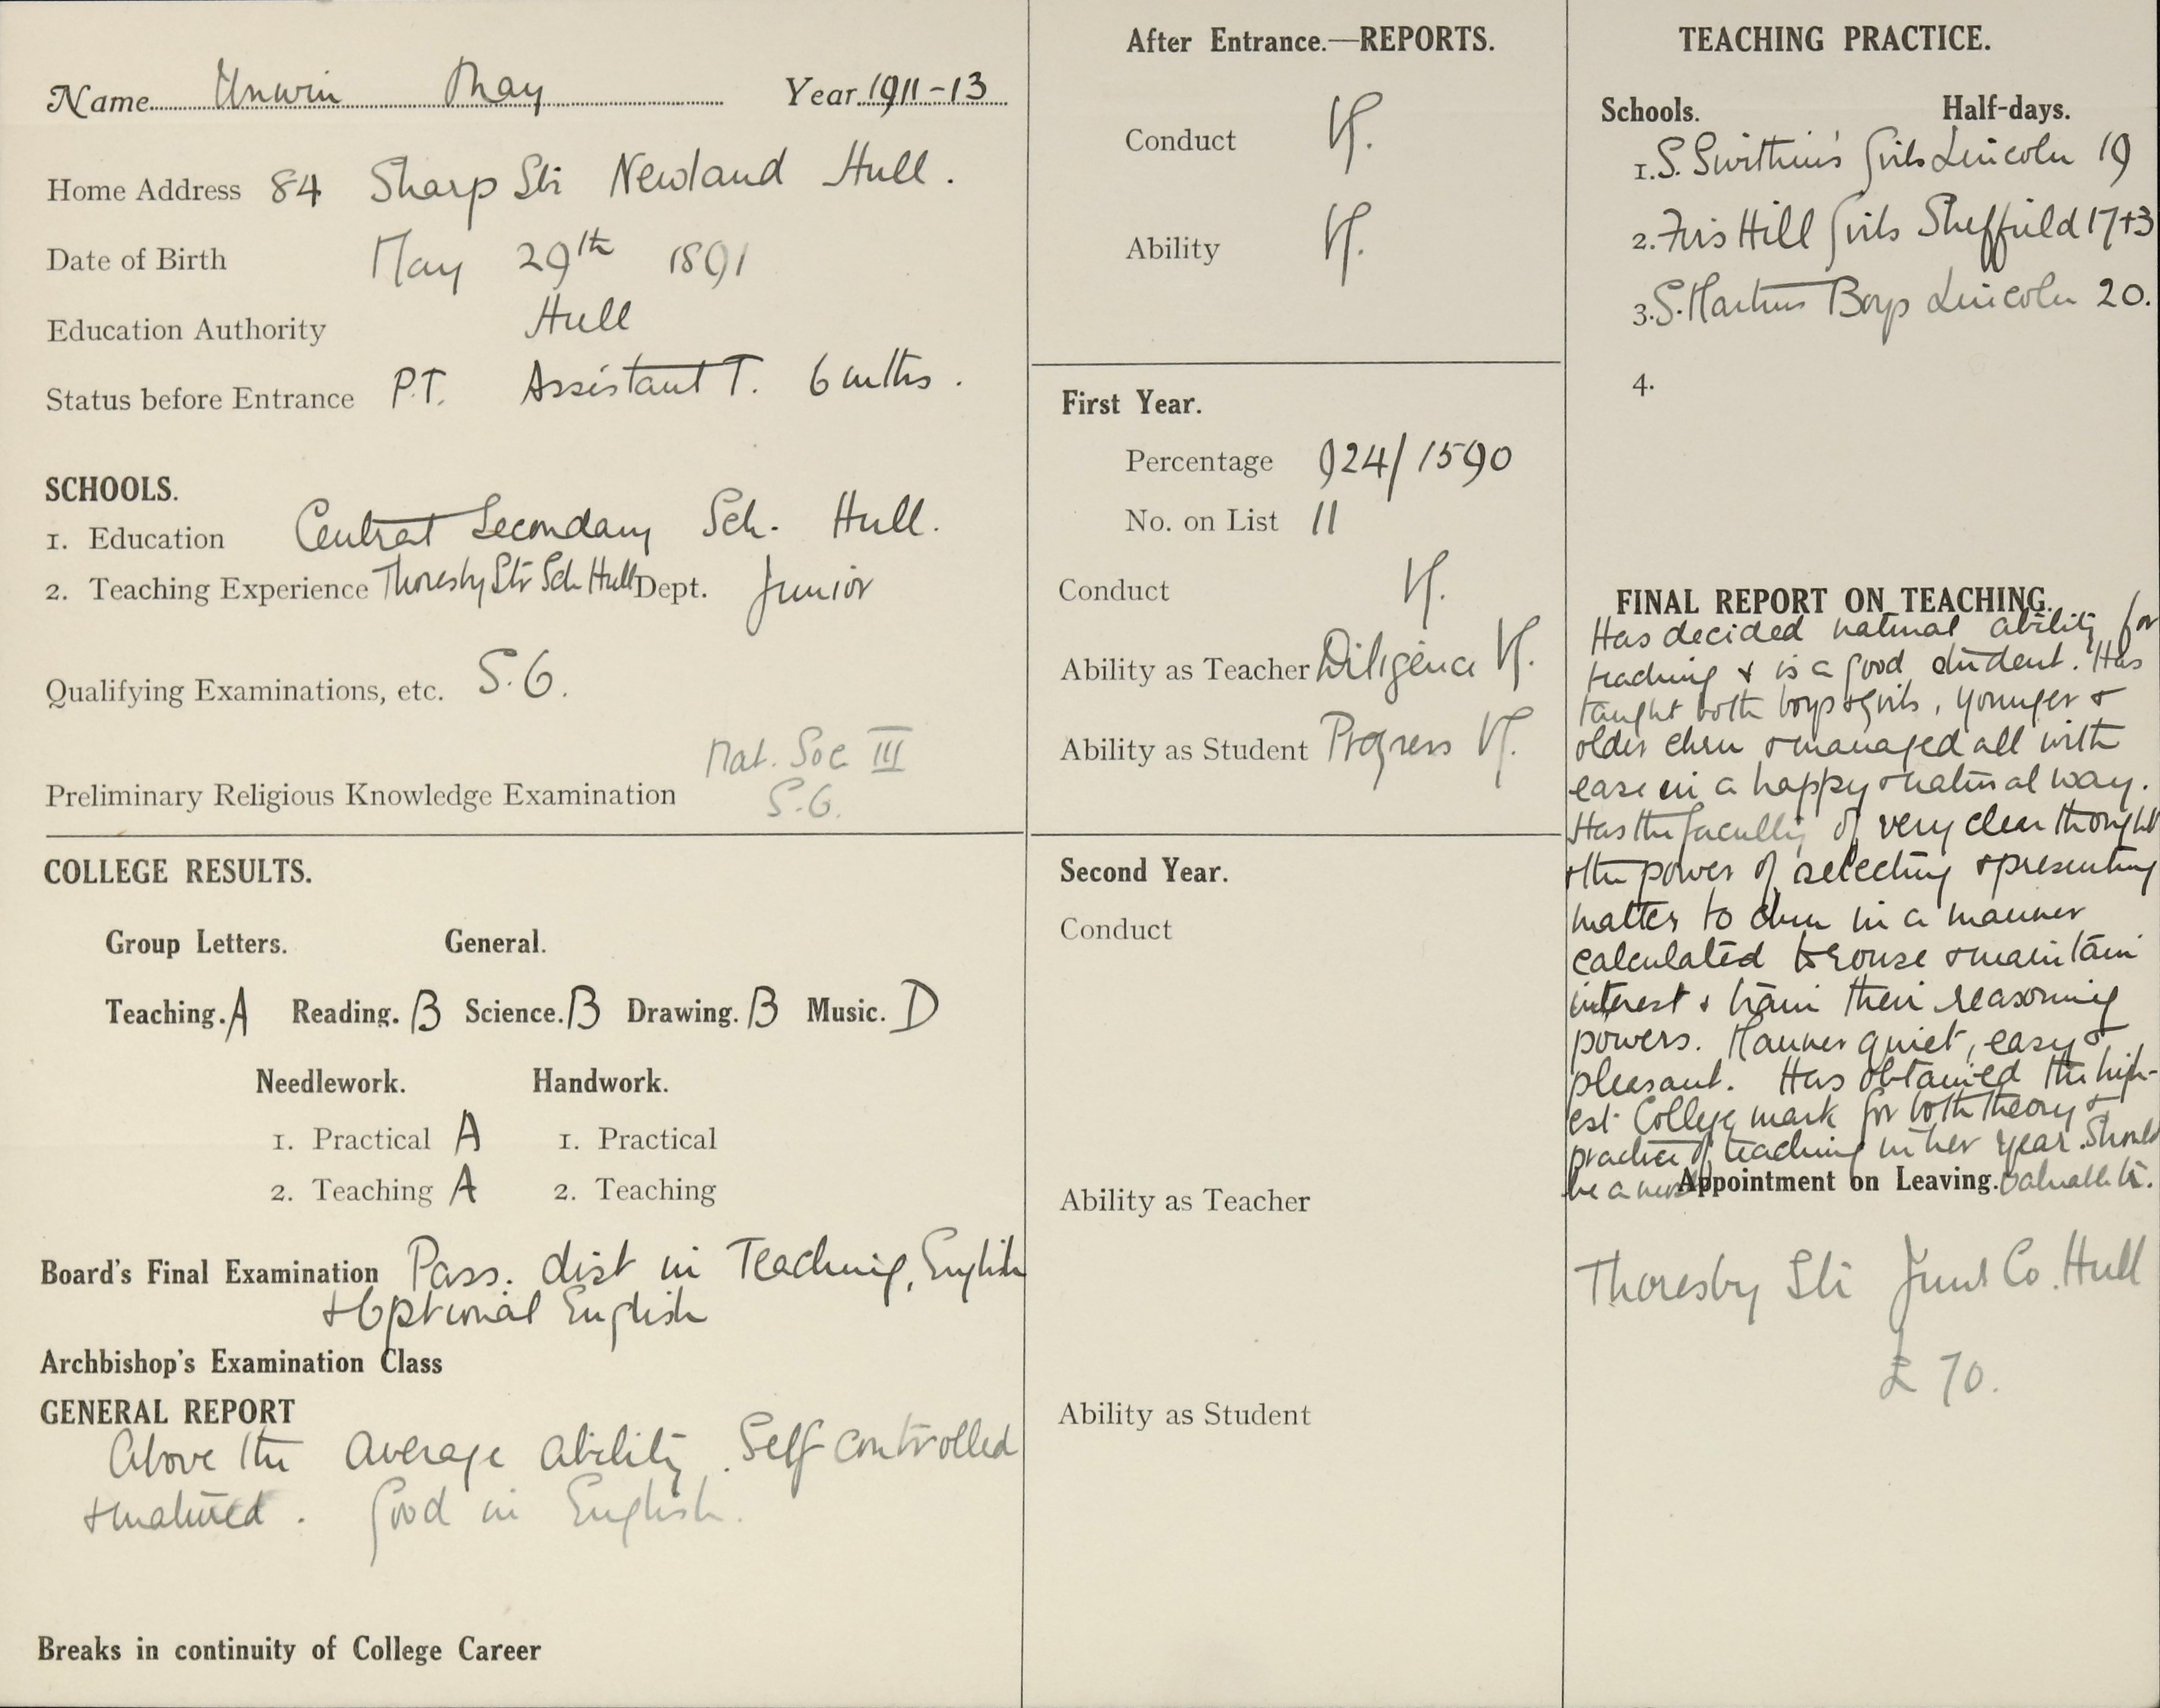 Name Unwin May Year 1911-13
Home Address 84 Sharp Str Newland Hull.
Date of Birth May 29th 1891
Education Authority Hull
Status before Entrance P.T. Assistant T. 6 mths.
SCHOOLS.
1. Education Central Secondary Sch. Hull.
2. Teaching Experience Thoresby Str Sch Hull Dept. Junior
Qualifying Examinations, etc. S.G.
Nat. Soc III
Preliminary Religious Knowledge Examination S.G.
COLLEGE RESULTS.
Group Letters. General.
Teaching. A Reading. B Science. B Drawing. B Music. D
Needlework. Handwork.
1. Practical A 1. Practical
2. Teaching A 2. Teaching
Board's Final Examination Pass. dist in Teaching, English
+ Optional English
Archbishop's Examination Class
GENERAL REPORT
Above the average ability. Self controlled
+ matured. Good in English.
Breaks in continuity of College Career
After Entrance.—REPORTS.
Conduct
Ability
First Year.
Percentage 924/1590
No. on List 11
Conduct
Ability as Teacher Diligence
Ability as Student Progress
Second Year.
Conduct
Ability as Teacher
Ability as Student
TEACHING PRACTICE.
Schools. Half-days.
1. S. Swithin's Girls Lincoln 19
2. Firs Hill Girls Sheffield 17+3
3. S. Martins Boys Lincoln 20.
4.
FINAL REPORT ON TEACHING.
Has decided natural ability for
teaching + is a good student. Has
taught both boys + girls, younger +
older chn + managed all with
ease in a happy + natural way.
Has the faculty of very clear thought
+ the power of selecting + presenting
matter to chn in a manner
calculated to rouse + maintain
interest + train their reasoning
powers. Manner quiet, easy +
pleasant. Has obtained the high-
est College mark for both theory +
practice of teaching in her year. Should
be a most valuable tr.
Appointment on Leaving.
Thoresby Str Junr Co. Hull
£70.